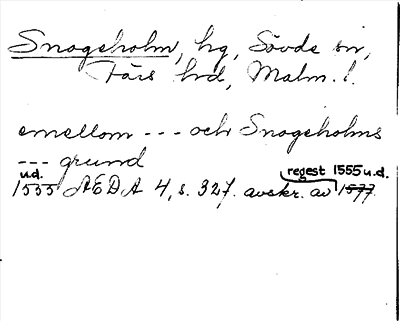 Snogeholm, hg, Sövde sn,
Färs hd, Malm. l.
emellom --- och Snogeholms
--- grund
u.d. regest 1555 u.d.
1555 ÆDA 4, s. 327. avskr. av 1577.